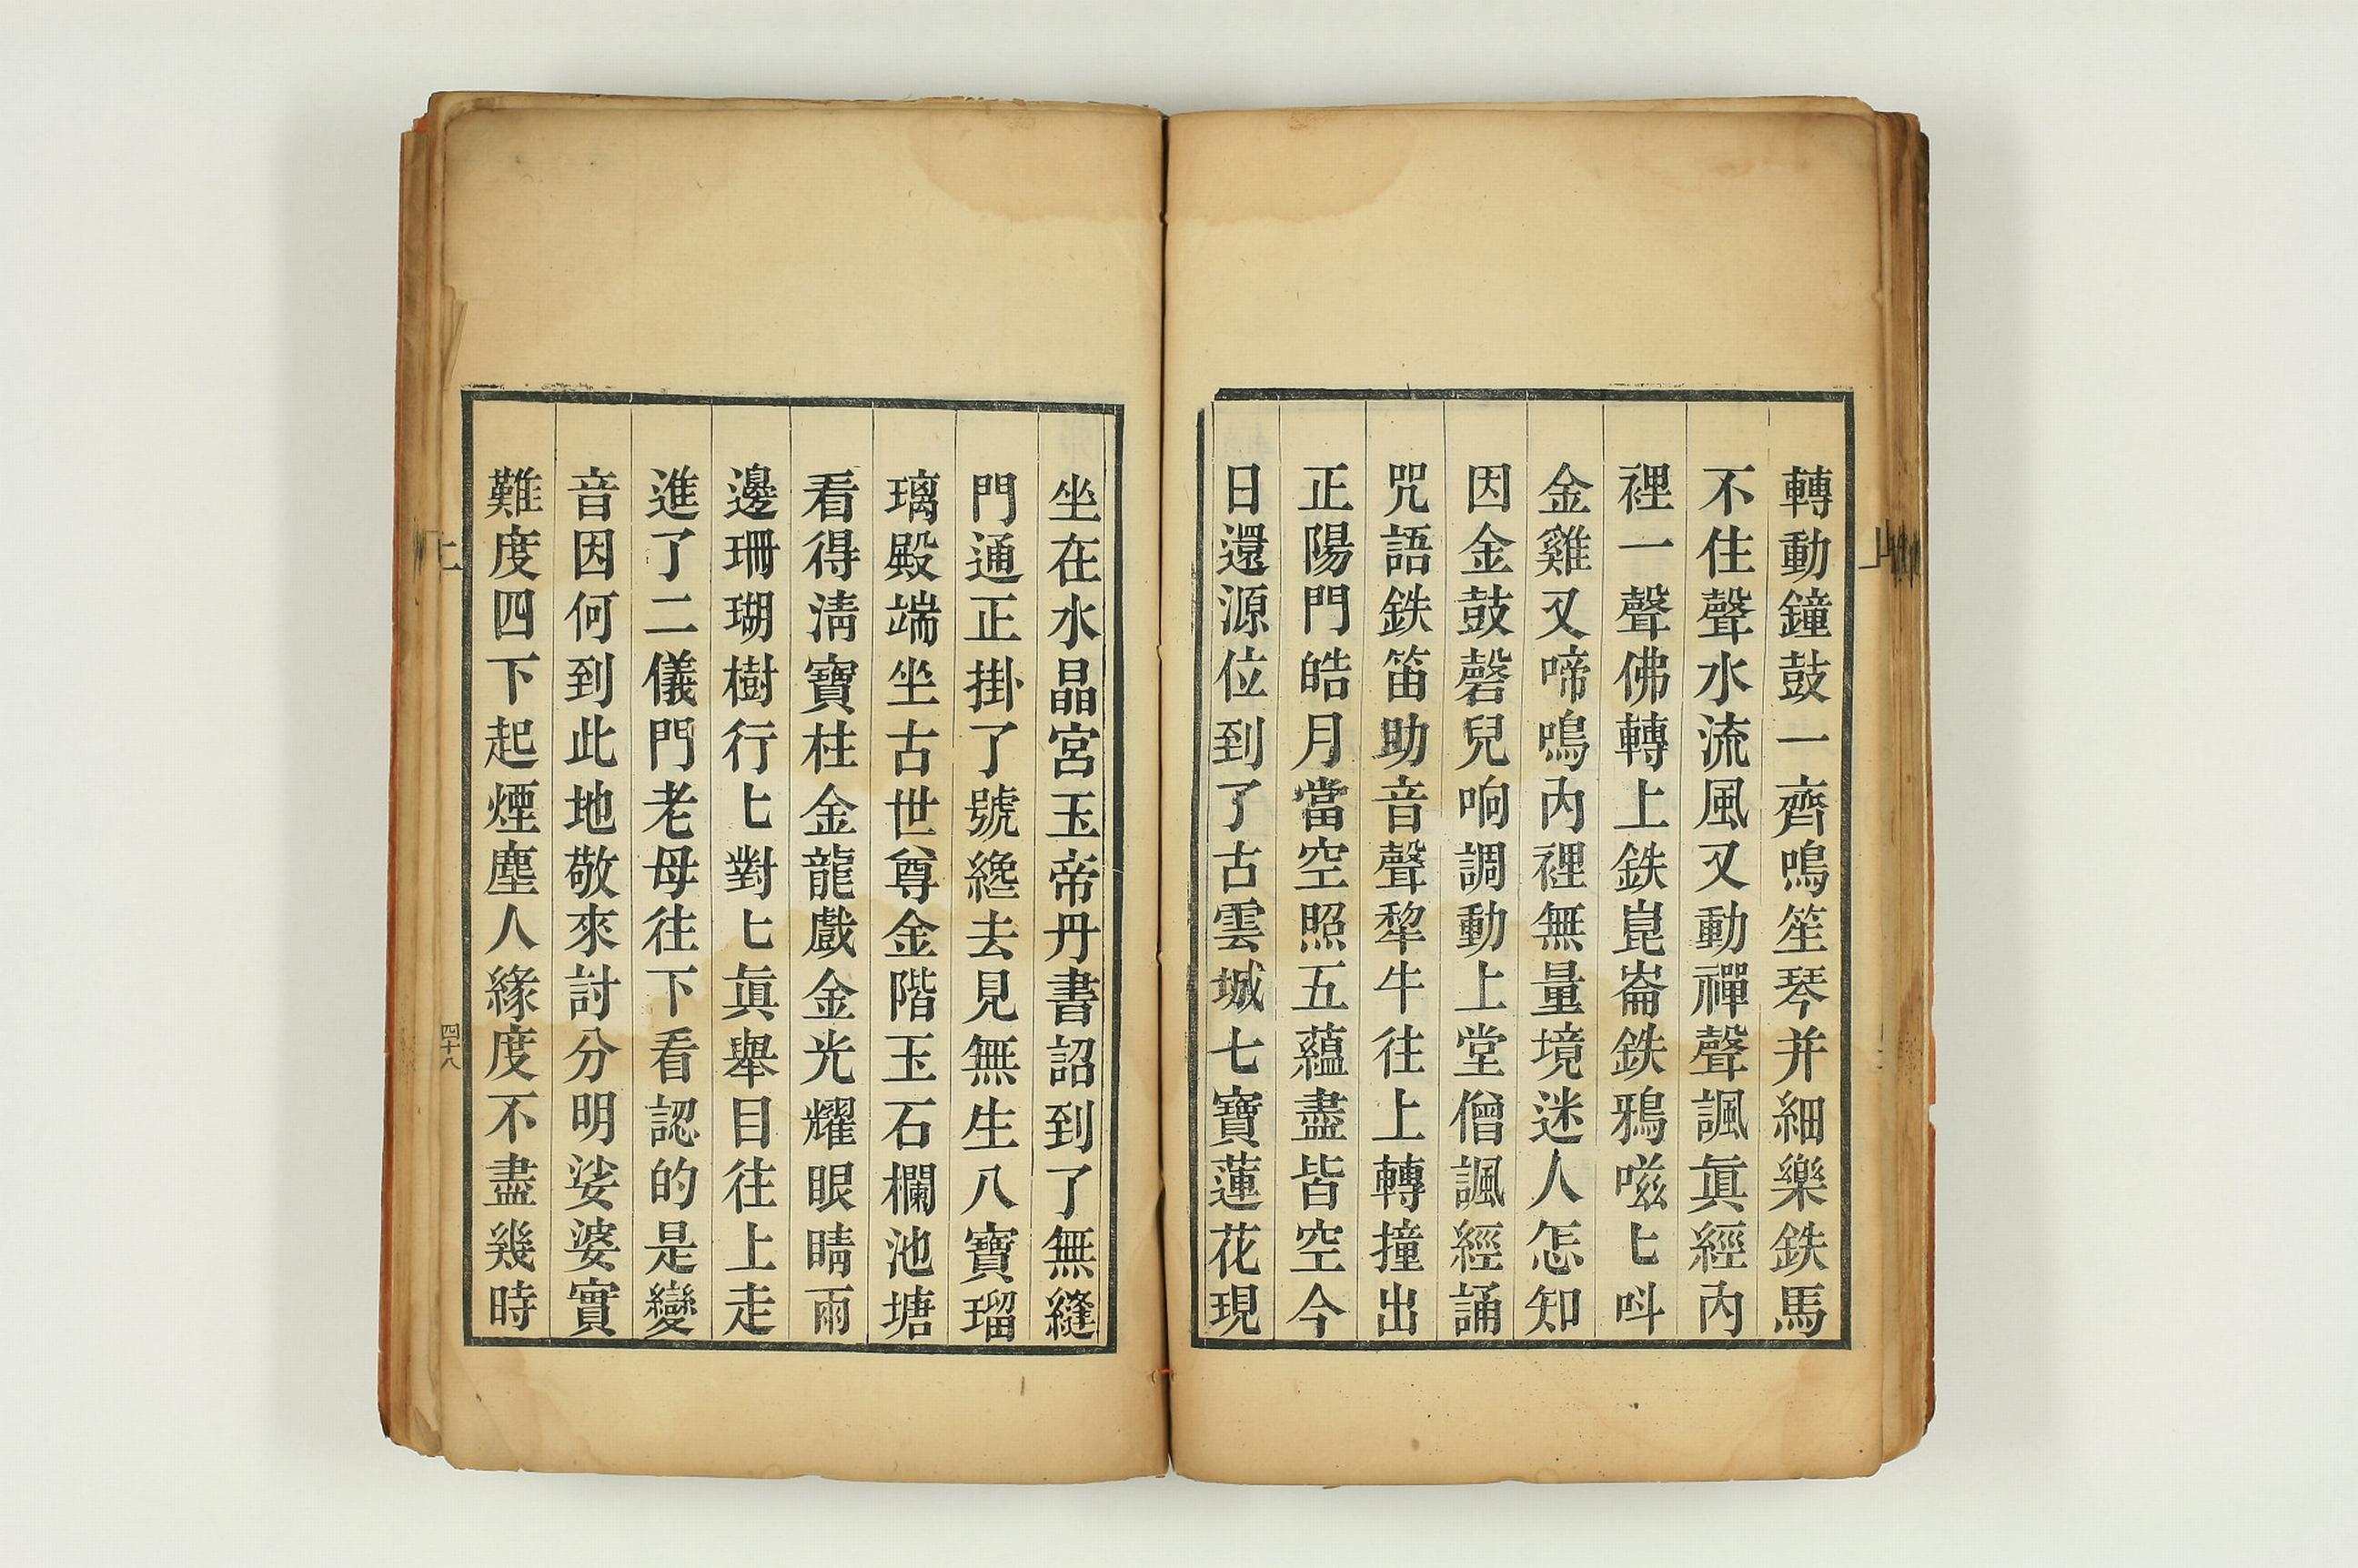 轉動鐘鼓一齊鳴笙琴并細樂鉄馬
不住聲水流風又動禪聲諷眞經內
裡一聲佛轉上鉄崑崙鉄鴉嗞匕呌
金雞又啼鳴內裡無量境迷人怎知
因金鼓磬兒响調動上堂僧諷經誦
咒語鉄笛助音聲犂牛往上轉撞出
正陽門皓月當空照五蘊盡皆空今
日還源位到了古雲城七寶蓮花現
坐在水晶宮玉帝丹書詔到了無縫
門通正掛了號纔去見無生八寶瑠
璃殿端坐古世尊金階玉石欄池塘
看得淸寶柱金龍戲金光耀眼睛兩
邊珊瑚樹行匕對匕眞舉目往上走
進了二儀門老母往下看認的是變
音因何到此地敬來討分明娑婆實
難度四下起煙塵人緣度不盡幾時
四十八